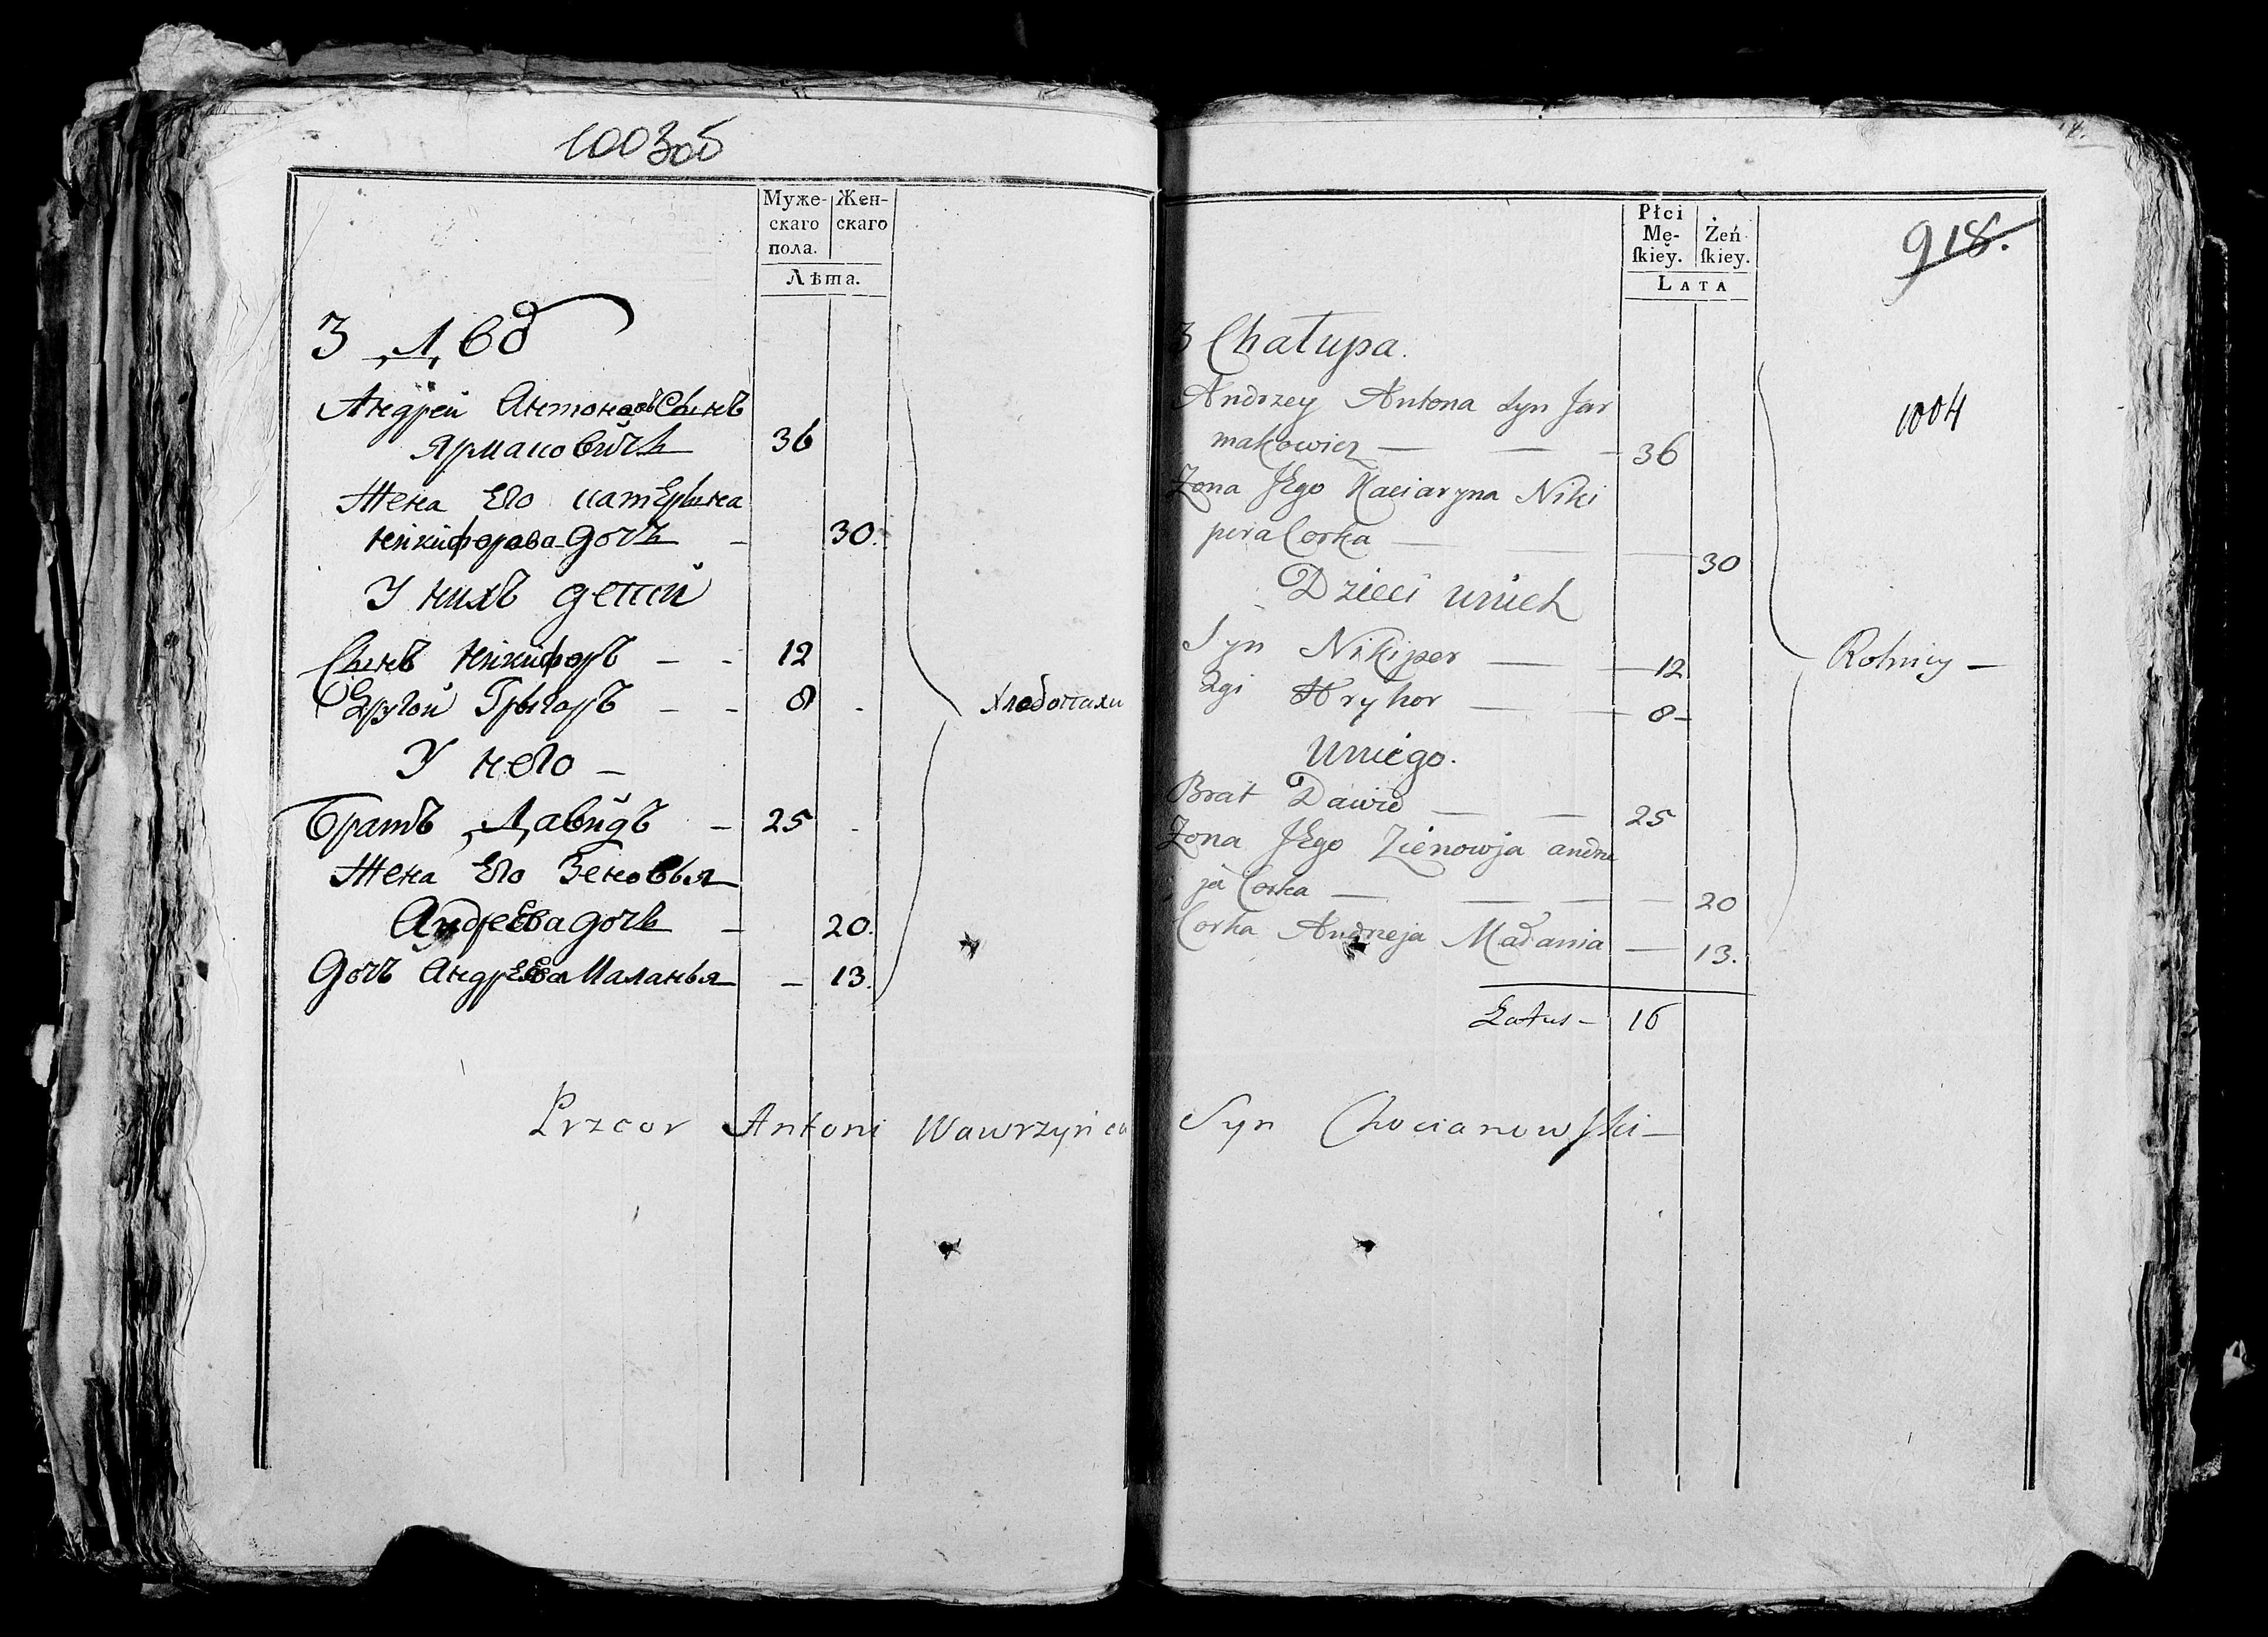 1003об
Муже-
скаго
пола.
Жен-
скаго
Лѣта.
3 Дво
Андрей Антоновъ Сынъ
Ярмаковичъ 36
Жена Его Катерына
Никифорова дочь - 30.
У нихъ детей
Сынъ Никифоръ - - 12
Другой Грыгоръ - - 8
Хлебопахи
У него -
Братъ Давидъ - 25
Жена Его Зеновья
Андреева дочь - 20.
Дочь Андреева Маланья - 13.
Przeor Antoni Wawrzyńca Syn Chocianowski
Płci
Mę-
ſkiey.
Żeń
ſkiey.
LATA
918.
1004
3 Chałupa.
Andrzey Antona Syn Jar
makowicz — — - 36
Zona JEgo Kaciaryna Niki
pera Corka — — — 30
Dzieci unich
Syn Nikiper — — 12
2gi Hryhor — — 8 -
Rolnicy —
Uniego.
Brat Dawid — — 25
Zona JEgo Zienowja andrze
ja Corka — — — 20
Corka Andrzeja Małania — 13.
Latus - 16